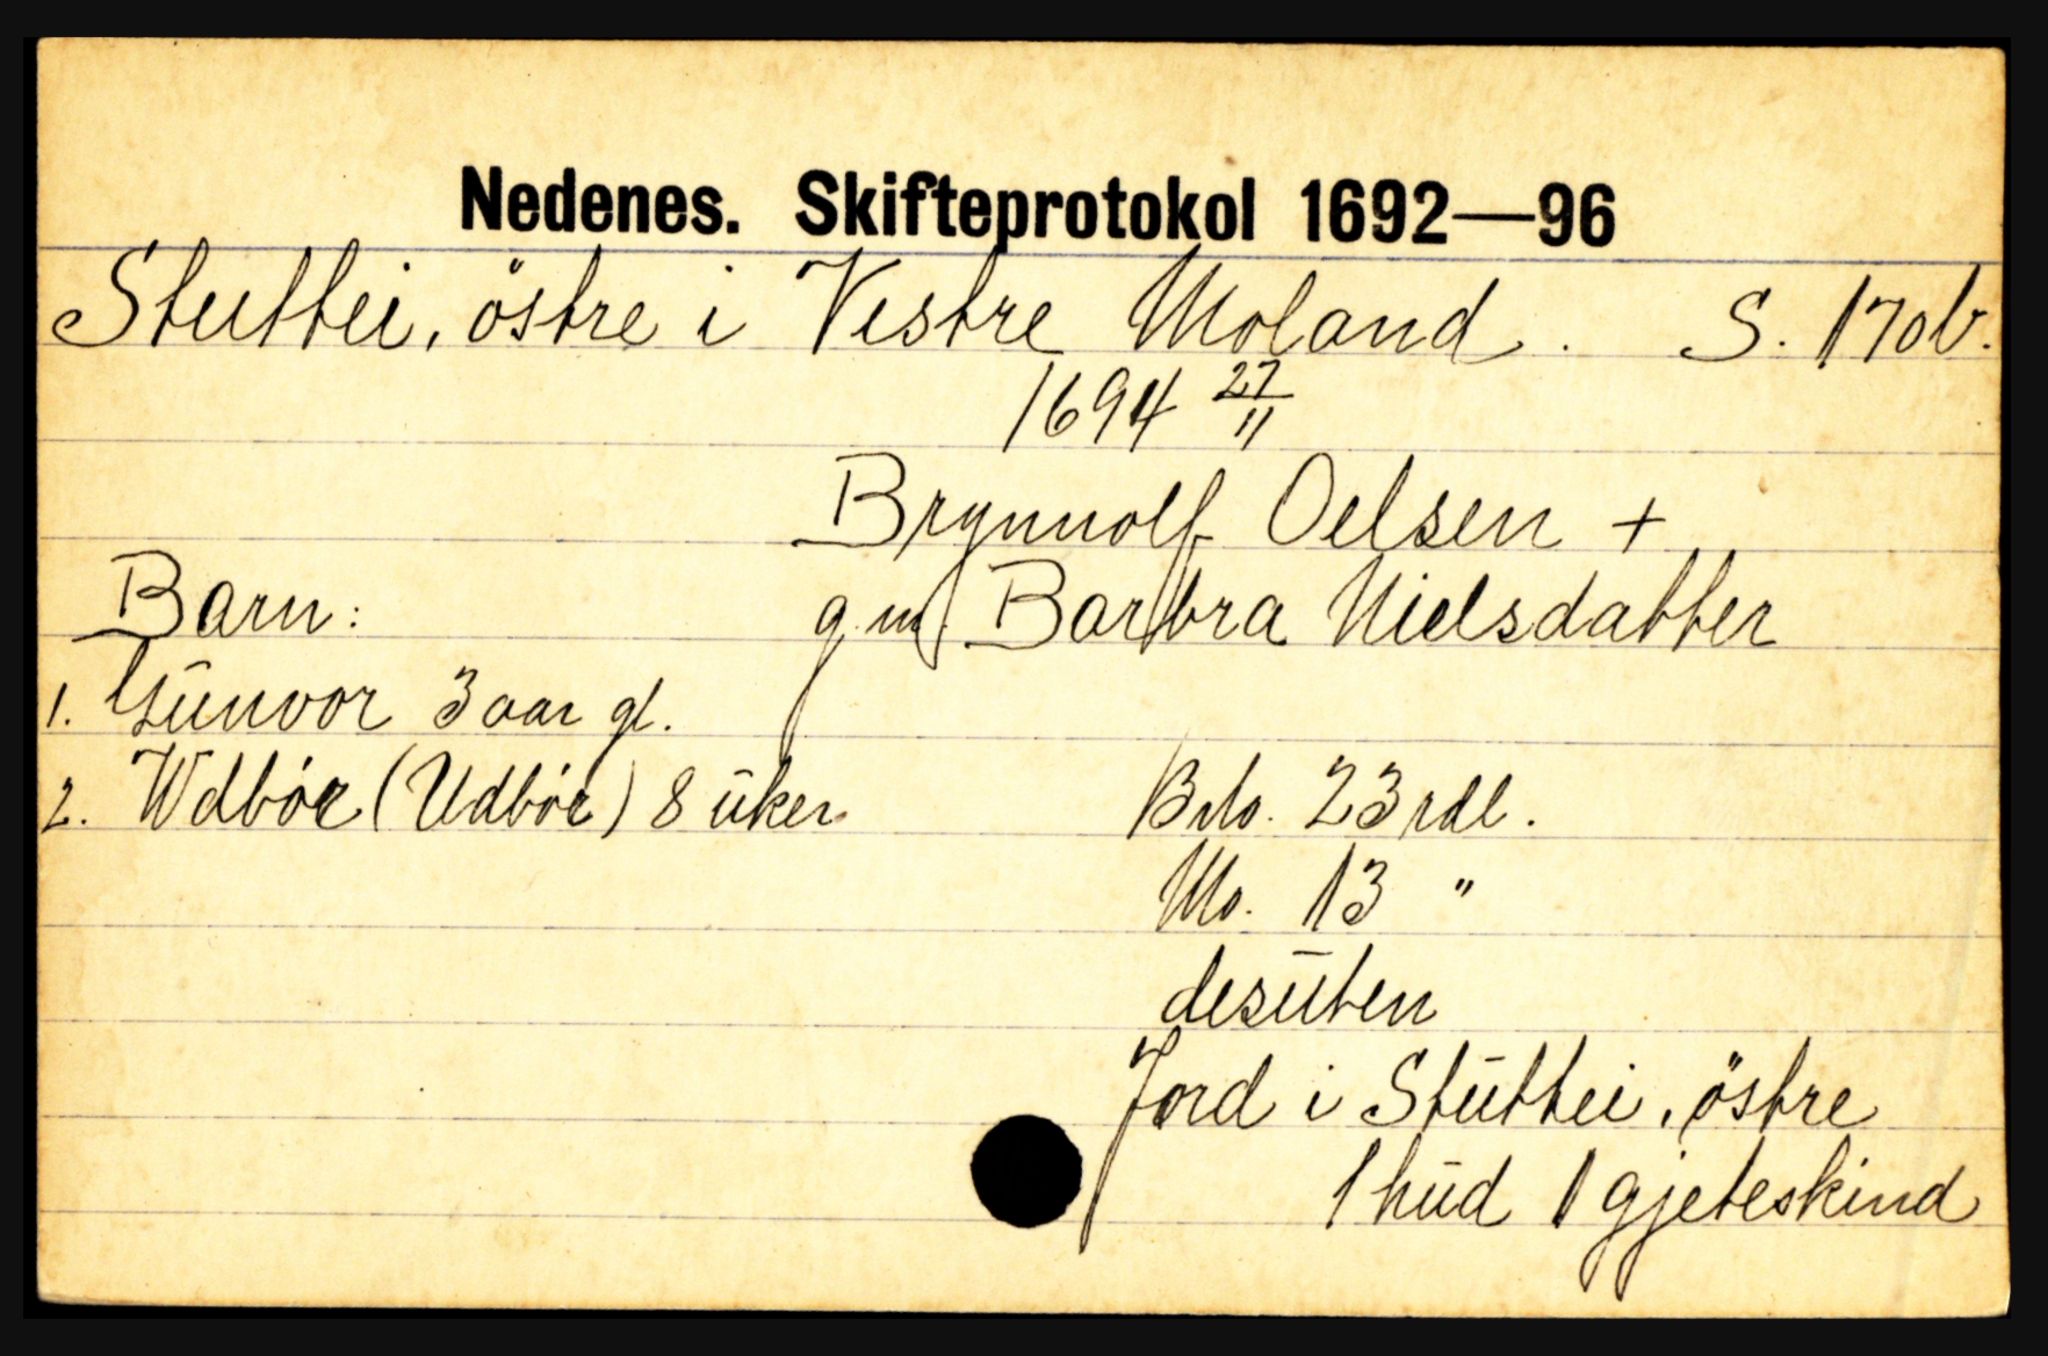 Nedenes. Skifteprotokol 1692—96
Stuttei, östre i Vestre Moland. S. 170b.
1694 27/11
Brynnolf Oelsen +
Barn: g.m. Barbra Nielsdatter
1. Gunvor 3 aar gl.
2. Wdbör (Udbör) 8 uker. Bto. 23 rdl.
No. 13 "
desuten
Jord i Stuttei, östre
1 hud 1 gjeteskind